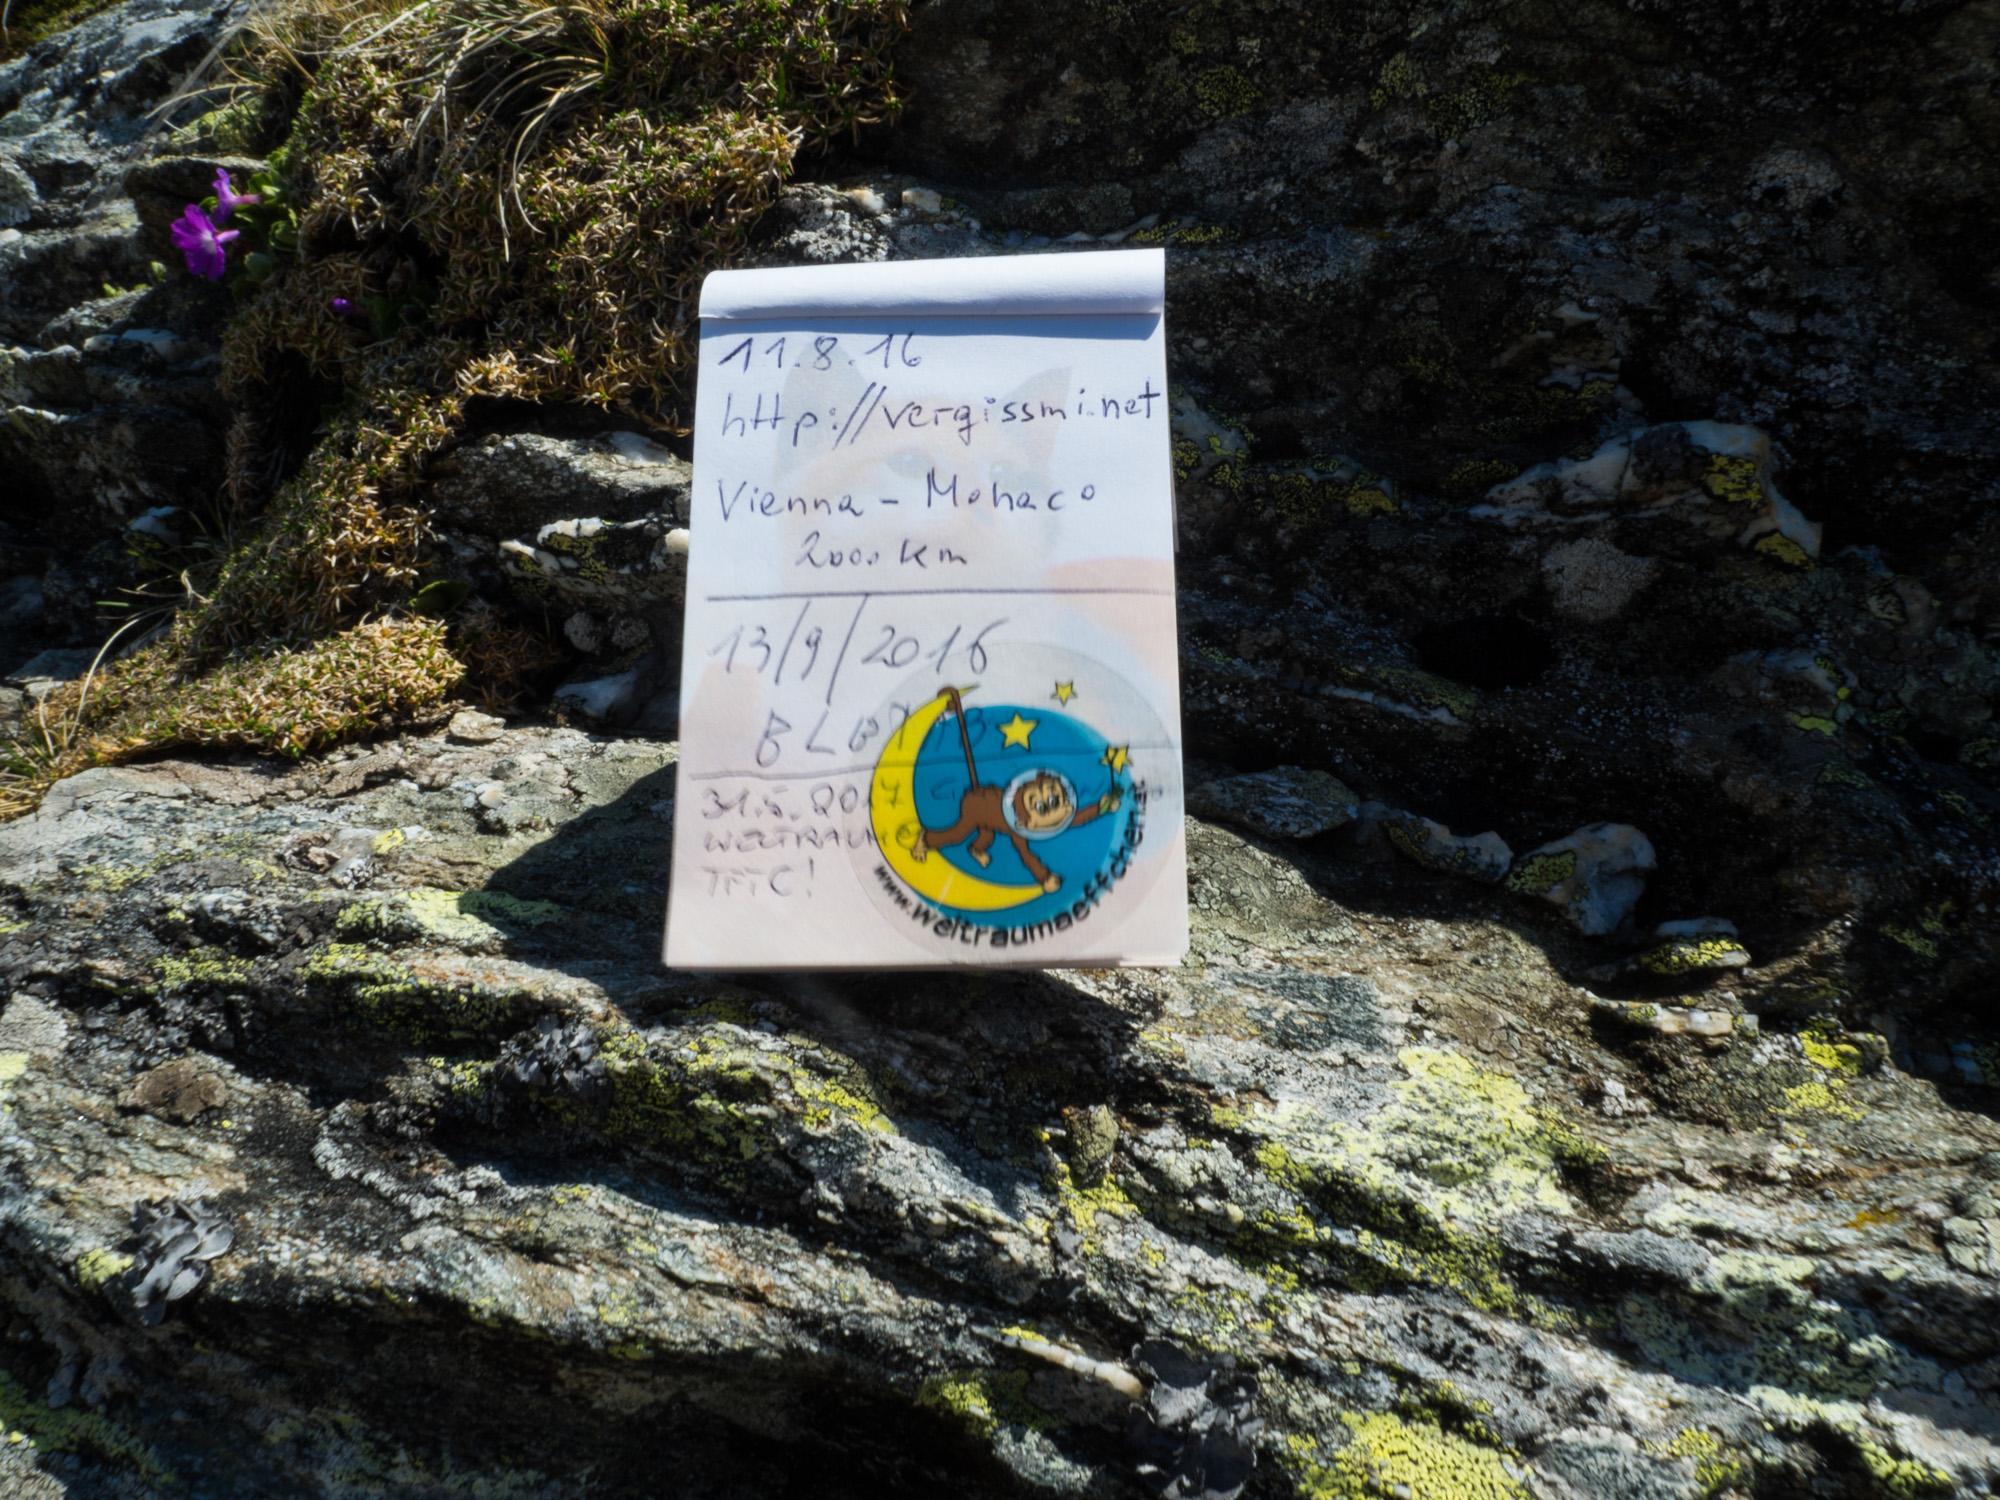 11.8.16
http://vergissmi.net
Vienna - Monaco
2000 km
13/9/2016
31.5.2017
WELTRAUM
TFTC!
www.weltraumaeffchen.at